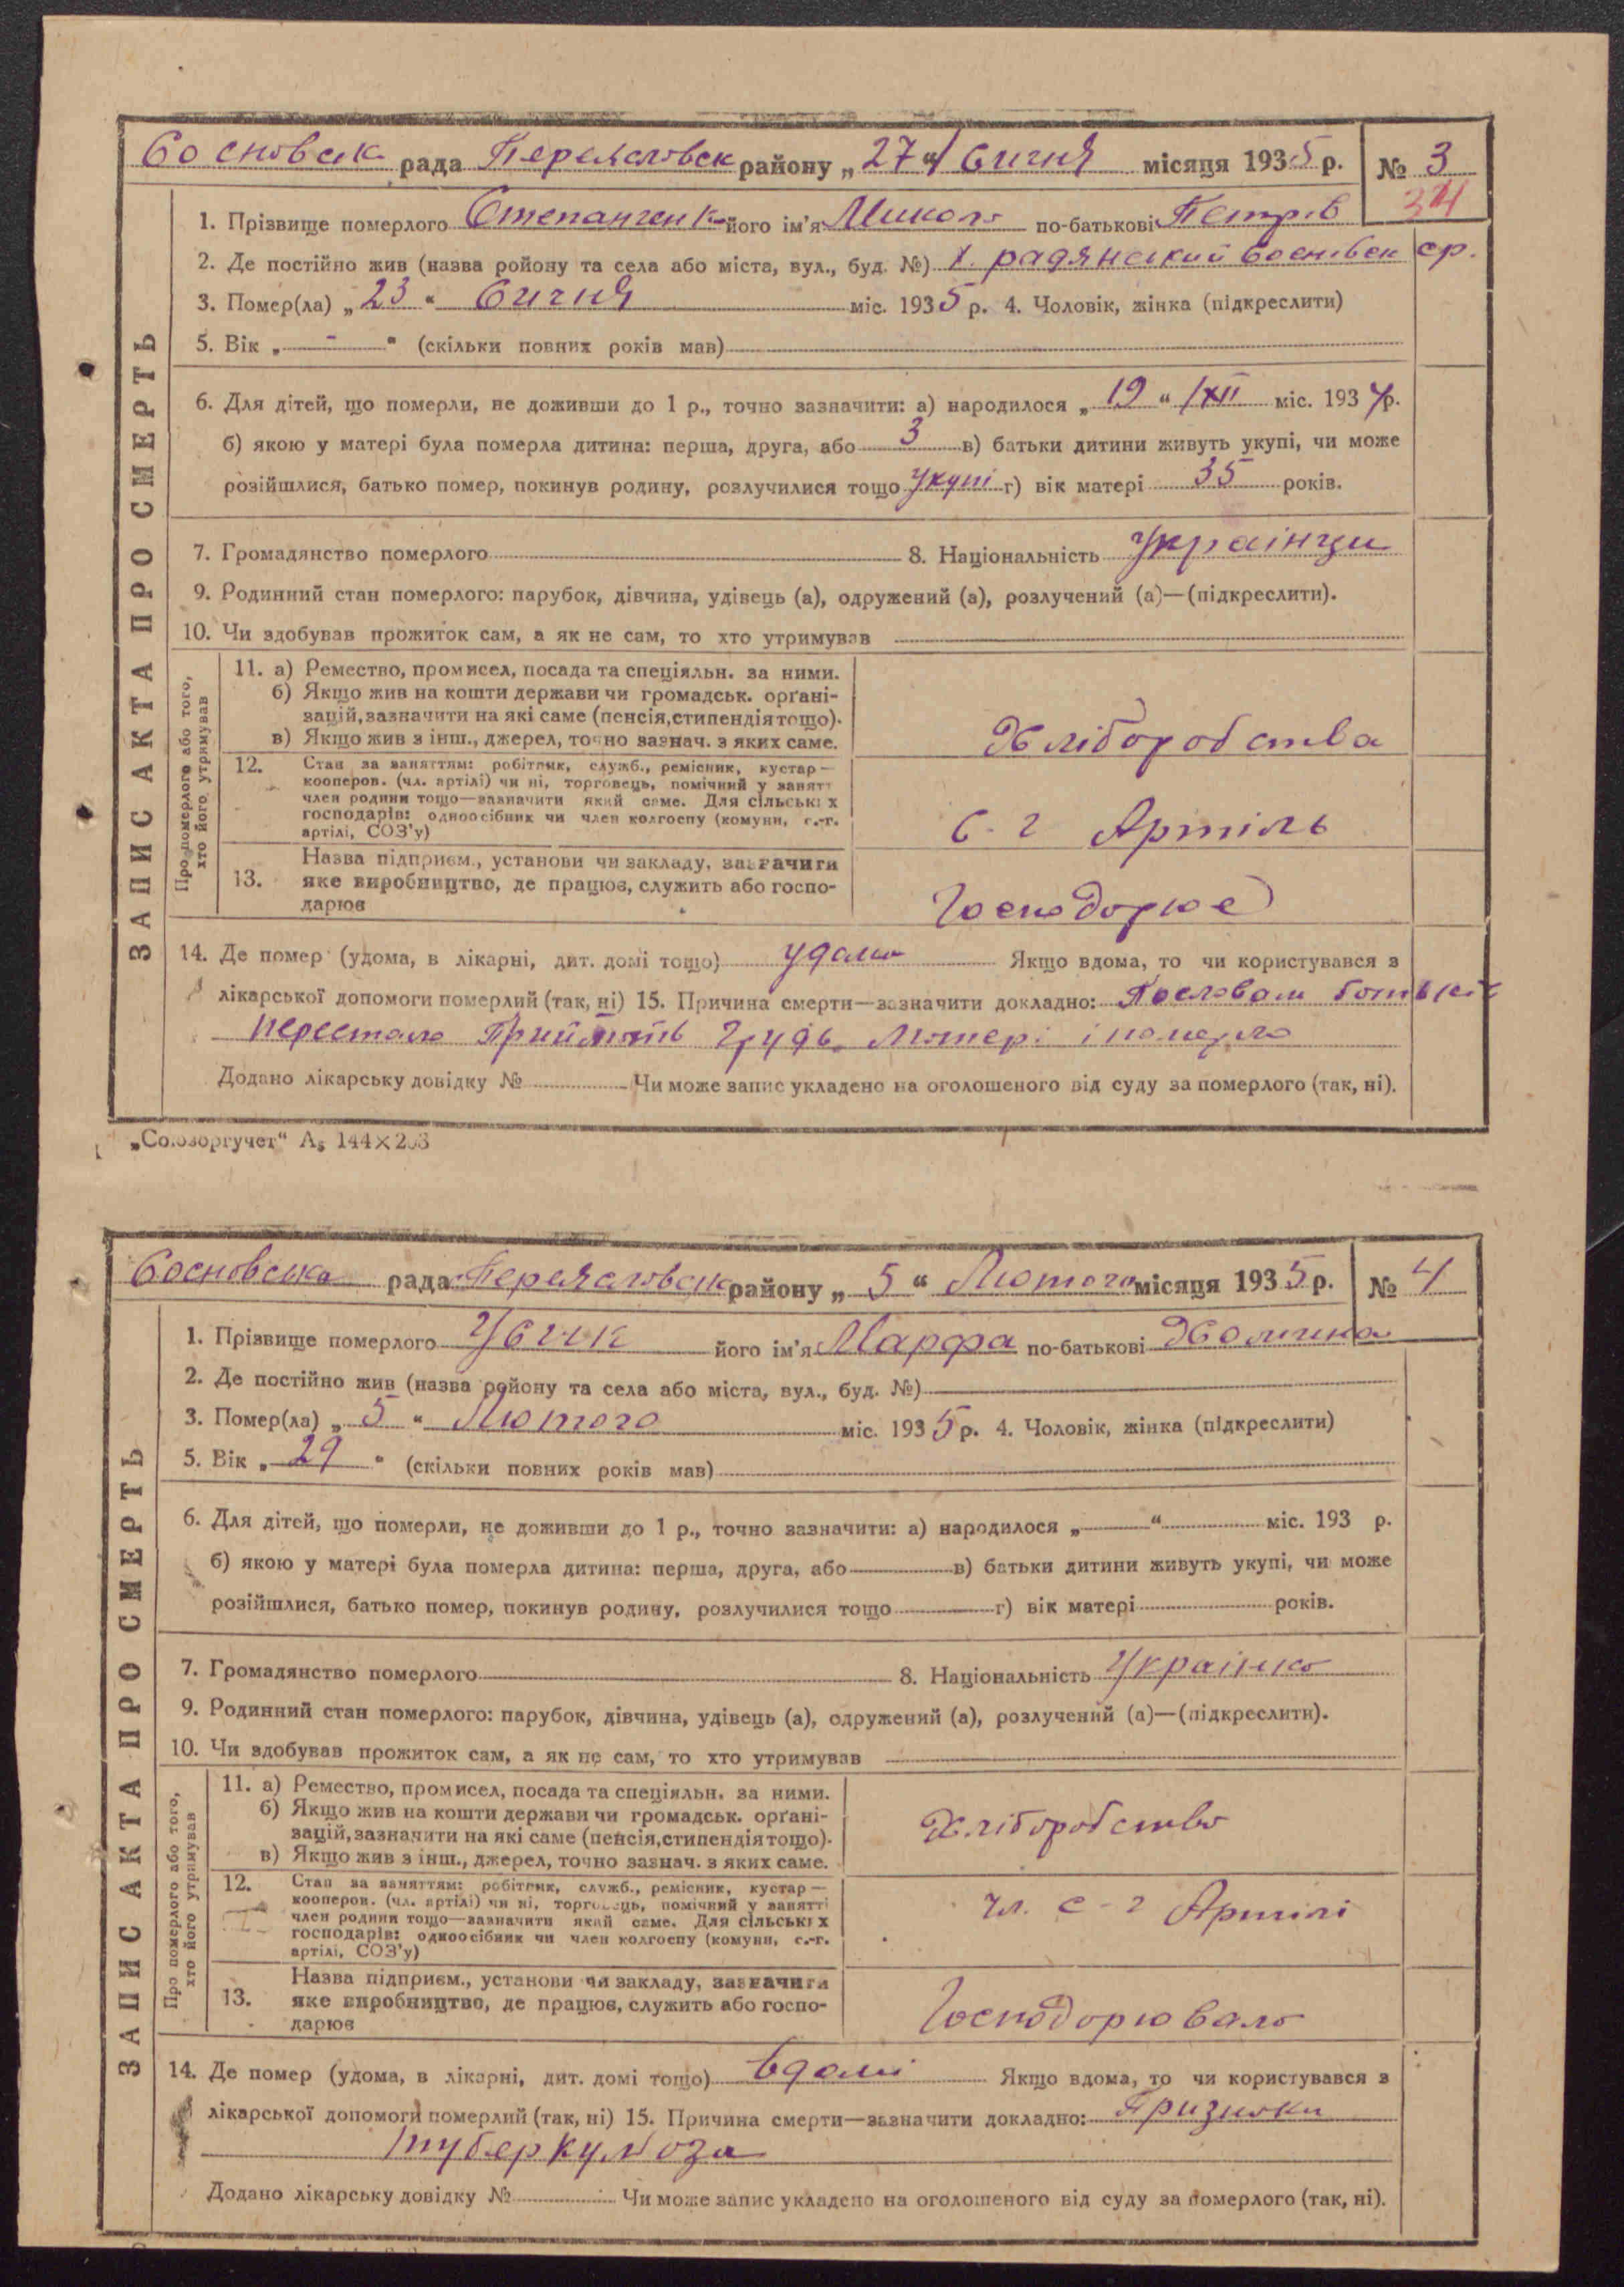 Сосновськ рада Переяславськ району „27“ Січня місяця 1935 р. № 3
34
1. Прізвище померлого Степанченко його ім'я Микола по-батькові Петрів
2. Де постійно жив (назва ройону та села або міста, вул., буд. №) х. радянський Соснівськ ср.
3. Помер(ла) „23“ Січня міс. 1935 р. 4. Чоловік, жінка (підкреслити)
5. Вік „-“ (скільки повних років мав)
6. Для дітей, що померли, не доживши до 1 р., точно зазначити: а) народилося „19“ XII міс. 1934 р.
б) якою у матері була померла дитина: перша, друга, або 3 в) батьки дитини живуть укупі, чи може
розійшлися, батько помер, покинув родину, розлучилися тощо укупі г) вік матері 35 років.
7. Громадянство померлого 8. Національність Українци
9. Родинний стан померлого: парубок, дівчина, удівець (а), одружений (а), розлучений (а)—(підкреслити).
10. Чи здобував прожиток сам, а як не сам, то хто утримував
11. а) Ремество, промисел, посада та спеціяльн. за ними.
б) Якщо жив на кошти держави чи громадськ. орґані-
зацій, зазначити на які саме (пенсія, стипендія тощо).
в) Якщо жив з інш., джерел, точно зазнач. з яких саме.
Хліборобства
12. Стан за заняттям: робітник, служб., ремісник, кустар—
кооперов. (чл. артілі) чи ні, торговець, помічний у занятт
член родини тощо—зазначити який саме. Для сільських
господарів: одноосібник чи член колгоспу (комуни, с.-г.
артілі, СОЗ'у)
С-г Артіль
13. Назва підприєм., установи чи закладу, зазначити
яке виробництво, де працює, служить або госпо-
дарює
Господорює
Про померлого або того, хто його утримував
14. Де помер (удома, в лікарні, дит. домі тощо) удома Якщо вдома, то чи користувався з
лікарської допомоги померлий (так, ні) 15. Причина смерти—зазначити докладно: Пословам батьків
перестало Приймать грудь Матері і померло
Додано лікарську довідку № Чи може запис укладено на оголошеного від суду за померлого (так, ні).
ЗАПИС АКТА ПРО СМЕРТЬ
„Союзоргучет“ А5 144×203
Сосновська рада Переяславськ району „5“ Лютого місяця 1935 р. № 4
1. Прізвище померлого Усик його ім'я Марфа по-батькові
2. Де постійно жив (назва ройону та села або міста, вул., буд. №)
3. Помер(ла) „5“ Лютого міс. 1935 р. 4. Чоловік, жінка (підкреслити)
5. Вік „29“ (скільки повних років мав)
6. Для дітей, що померли, не доживши до 1 р., точно зазначити: а) народилося „ “ міс. 193 р.
б) якою у матері була померла дитина: перша, друга, або в) батьки дитини живуть укупі, чи може
розійшлися, батько помер, покинув родину, розлучилися тощо г) вік матері років.
7. Громадянство померлого 8. Національність Українка
9. Родинний стан померлого: парубок, дівчина, удівець (а), одружений (а), розлучений (а)—(підкреслити).
10. Чи здобував прожиток сам, а як не сам, то хто утримував
11. а) Ремество, промисел, посада та спеціяльн. за ними.
б) Якщо жив на кошти держави чи громадськ. орґані-
зацій, зазначити на які саме (пенсія, стипендія тощо).
в) Якщо жив з інш., джерел, точно зазнач. з яких саме.
Хліборобство
12. Стан за заняттям: робітник, служб., ремісник, кустар—
кооперов. (чл. артілі) чи ні, торговець, помічний у занятті
член родини тощо—зазначити який саме. Для сільських
господарів: одноосібник чи член колгоспу (комуни, с.-г.
артілі, СОЗ'у)
чл. с-г Артілі
13. Назва підприєм., установи чи закладу, зазначити
яке виробництво, де працює, служить або госпо-
дарює
Господорювала
Про померлого або того, хто його утримував
14. Де помер (удома, в лікарні, дит. домі тощо) вдомі Якщо вдома, то чи користувався з
лікарської допомоги померлий (так, ні) 15. Причина смерти—зазначити докладно: Призноки
туберкулоза
Додано лікарську довідку № Чи може запис укладено на оголошеного від суду за померлого (так, ні).
ЗАПИС АКТА ПРО СМЕРТЬ